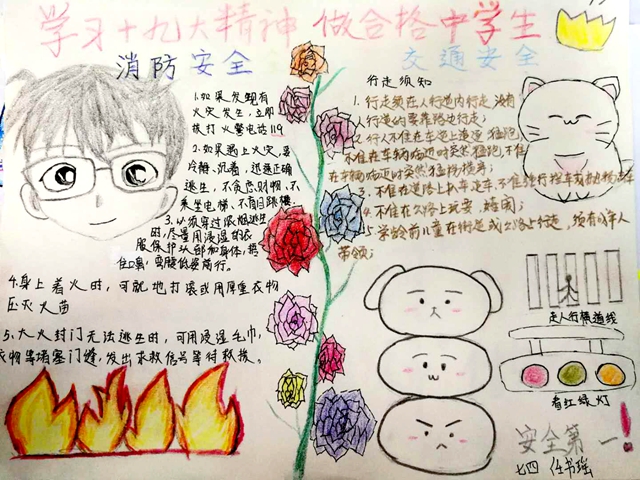 学习十九大精神 做合格中学生
消防安全
1.如果发现有
火灾发生，立即
拨打火警电话119
2.如果遇上火灾，要
冷静、沉着，迅速正确
逃生，不贪恋财物、不
乘坐电梯、不盲目跳楼
3.必须穿过浓烟逃生
时，尽量用浸湿的衣
服保护头部和身体，捂
住口鼻，弯腰低姿前行。
4.身上着火时，可就地打滚或用厚重衣物
压灭火苗
5、大火封门无法逃生时，可用浸湿毛巾，
衣物等堵塞门缝，发出求救信号等待救援。
交通安全
行走须知
1.行走须在人行道内行走，没有
人行道的要靠路边行走；
2.行人不准在车道上追逐，猛跑，
不准在车辆临近时突然猛跑，不准
在车辆临近时突然猛跑横穿；
3.不准在道路上扒车、追车、不准强行拦车或抛物击车
4.不准在公路上玩耍、嬉闹；
5.学龄前儿童在街道或公路上行走，须有成年人
带领；
走人行横道线
看红绿灯
安全第一！
七四 任书瑶